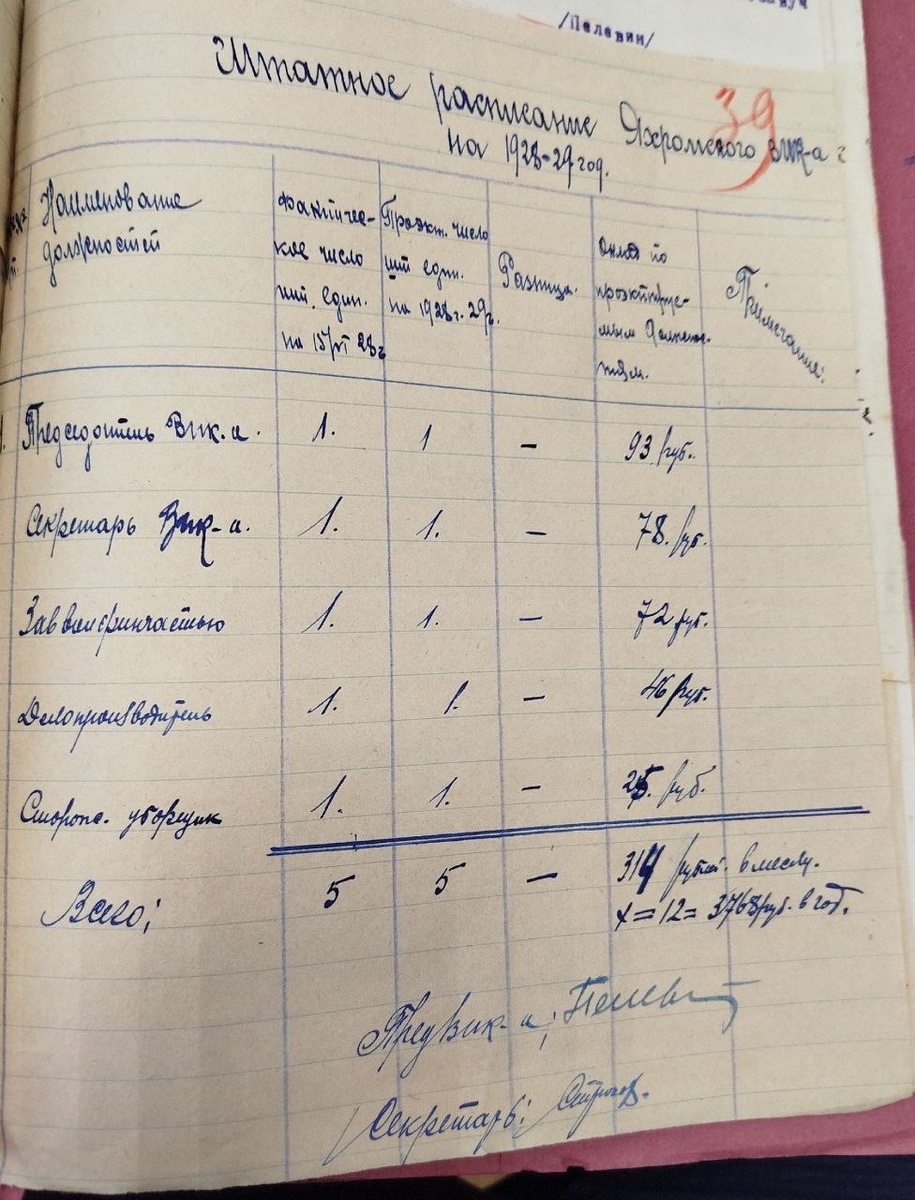 /Пелевин/
39
Штатное расписание Яхромского ВИК-а
на 1928-29 год.
Наименование должностей
Фактичес-
кое число
шт. един.
на 15/VI 28 г
Проэкт. число
шт един.
на 1928 г. 29 г.
Разница.
Оклад по
проэктируе-
мым должнос-
тям.
Примечание:
1. Председатель Вик.а. 1. 1 — 93 руб.
Секретарь Вик-а. 1. 1. — 78. руб.
Зав волфинчастью 1. 1. — 72 руб.
Делопроизводитель 1. 1. — 46 руб.
Сторож. уборщик 1. 1. — 25. руб.
Всего; 5 5 — 314 рублей. в месяц.
x=12= 3768 руб. в год.
Предвик-а; Пелевин
Секретарь: